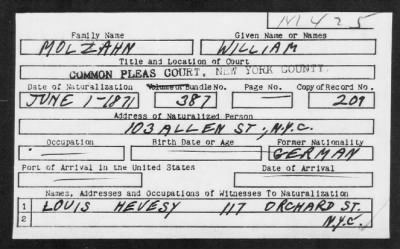 M425
Family Name Given Name or Names
MOLZAHN WILLIAM
Title and Location of Court
COMMON PLEAS COURT, NEW YORK COUNTY.
Date of Naturalization Volume or Bundle No. Page No. Copy of Record No.
JUNE 1-1871 387 — 209
Address of Naturalized Person
103 ALLEN ST., N.Y.C.
Occupation Birth Date or Age Former Nationality
— — GERMAN
Port of Arrival in the United States Date of Arrival
— —
Names, Addresses and Occupations of Witnesses To Naturalization
1 LOUIS HEVESY 117 ORCHARD ST.
2 N.Y.C.